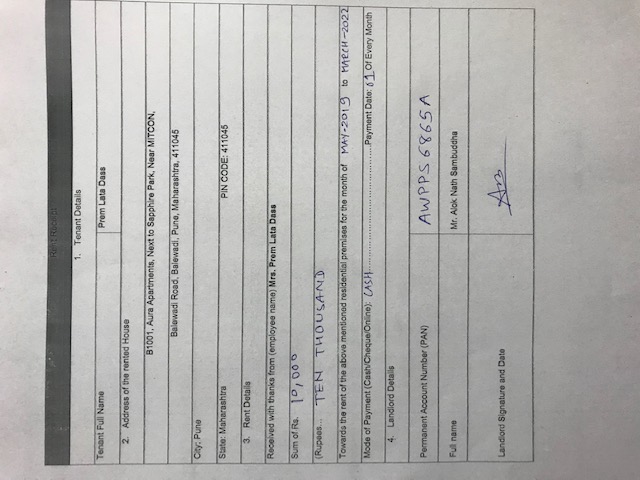 Rent Receipt
1. Tenant Details
Tenant Full Name Prem Lata Dass
2. Address of the rented House
B1001, Aura Apartments, Next to Sapphire Park, Near MITCON,
Balewadi Road, Balewadi, Pune, Maharashtra, 411045
City: Pune
State: Maharashtra PIN CODE: 411045
3. Rent Details
Received with thanks from (employee name) Mrs. Prem Lata Dass
Sum of Rs. 10,000
(Rupees... TEN THOUSAND
Towards the rent of the above mentioned residential premises for the month of MAY-2019 to MARCH-2022
Mode of Payment (Cash/Cheque/Online): CASH.......................................Payment Date: 01 Of Every Month
4. Landlord Details
Permanent Account Number (PAN) AWPPS6865A
Full name Mr. Alok Nath Sambuddha
Landlord Signature and Date